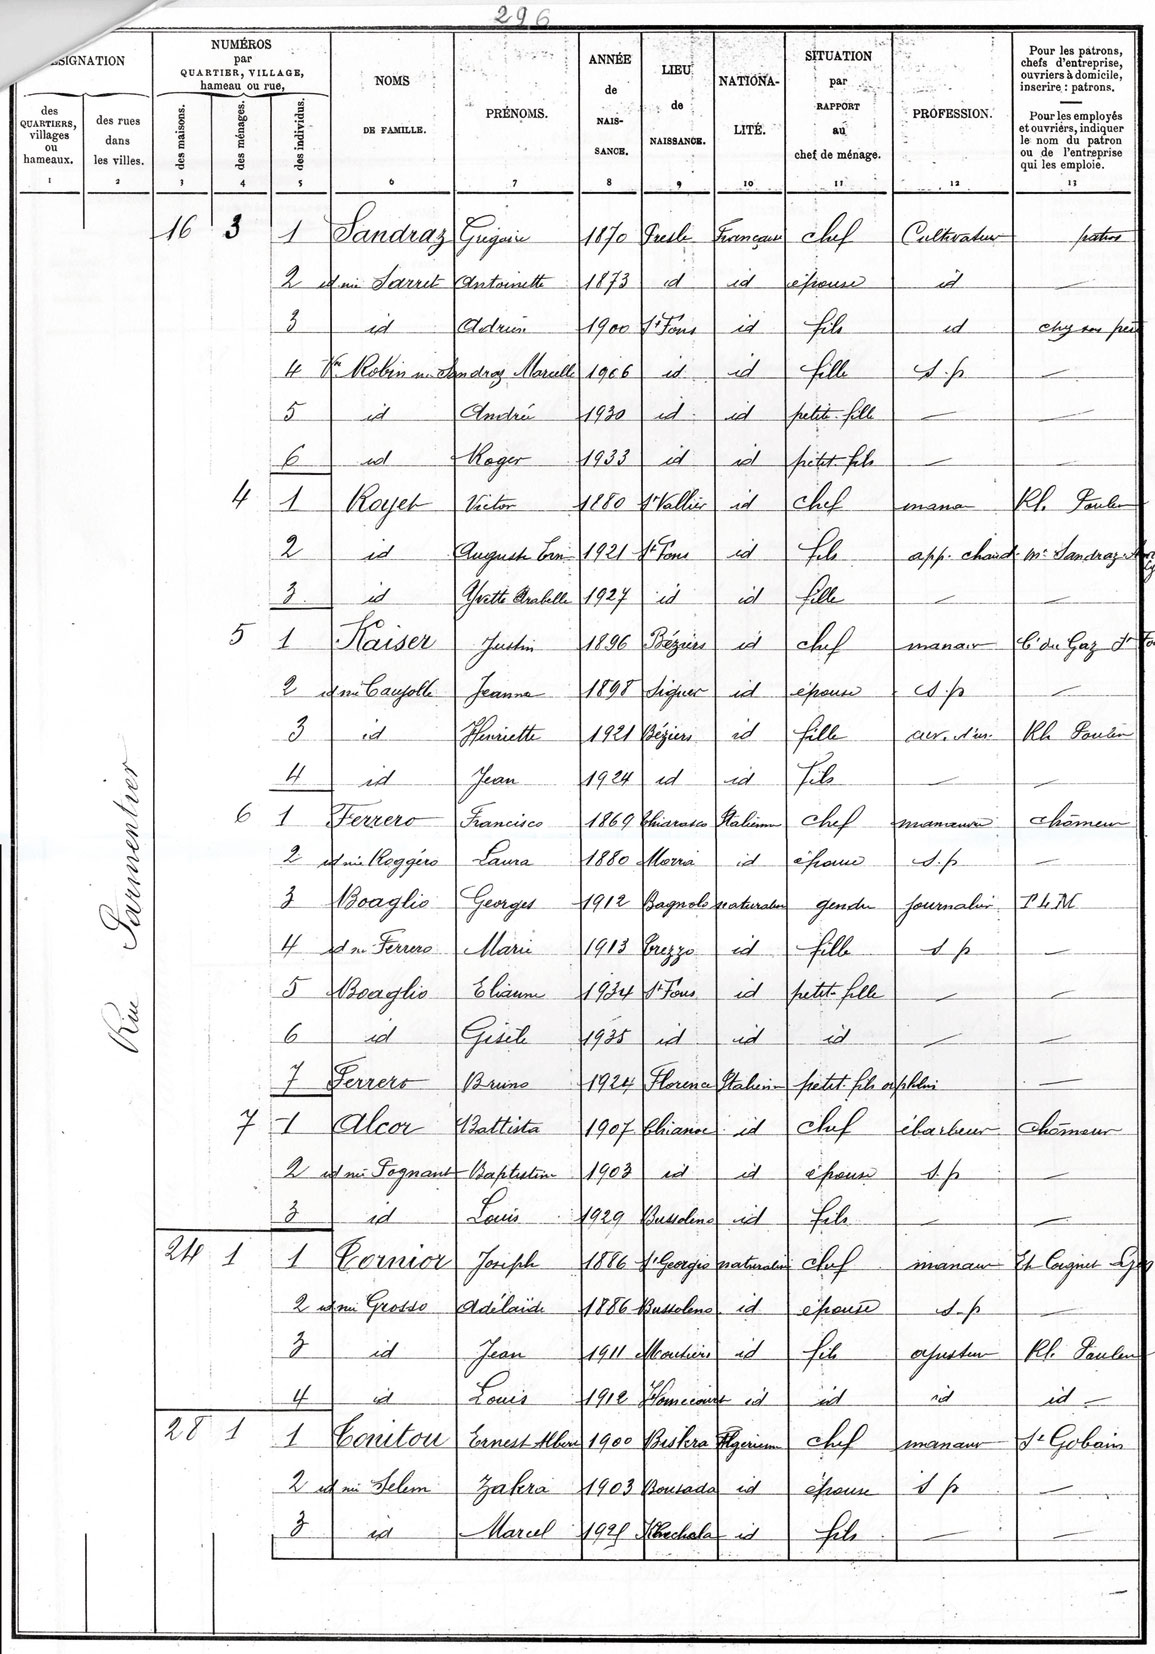 296
DÉSIGNATION
des QUARTIERS, villages ou hameaux.
des rues dans les villes.
NUMÉROS par QUARTIER, VILLAGE, hameau ou rue,
des maisons.
des ménages.
des individus.
NOMS DE FAMILLE.
PRÉNOMS.
ANNÉE de NAISSANCE.
LIEU de NAISSANCE.
NATIONALITÉ.
SITUATION par RAPPORT au chef de ménage.
PROFESSION.
Pour les patrons, chefs d'entreprise, ouvriers à domicile, inscrire : patrons.
Pour les employés et ouvriérs, indiquer le nom du patron ou de l'entreprise qui les emploie.
1 2 3 4 5 6 7 8 9 10 11 12 13
Rue Parmentier
16 3 1 Sandraz Grégoire 1870 Presle Française chef Cultivateur patron
2 id née Sarret Antoinette 1873 id id épouse id —
3 id Adrien 1900 St Fons id fils id chez son père
4 Vve Robin née Sandraz Marcelle 1906 id id fille s.p —
5 id Andrée 1930 id id petite-fille — —
6 id Roger 1933 id id petit-fils — —
4 1 Royet Victor 1880 St Vallier id chef manœ Rh. Poulen
2 id Auguste 1921 St Fons id fils app. chaud. Mr Sandraz
3 id Yvette Arabelle 1927 id id fille — —
5 1 Kaiser Justin 1896 Béziers id chef manœuv Cie du Gaz St Fo
2 id née Caujolle Jeanne 1898 Siguer id épouse s.p —
3 id Henriette 1921 Béziers id fille ouv. d'us. Rh. Poulen
4 id Jean 1924 id id fils — —
6 1 Ferrero Francisco 1869 Chiarasco Italienne chef manœuvre chômeur
2 id née Roggéro Laura 1880 Morra id épouse s.p —
3 Boaglio Georges 1912 Bagnolo naturalisé gendre journalier P L M
4 id née Ferrero Marie 1913 Trezzo id fille s p —
5 Boaglio Elianne 1934 St Fons id petite fille — —
6 id Gisèle 1935 id id id — —
7 Ferrero Bruno 1924 Florence Italienne petit-fils orphelin —
7 1 Alcor Battista 1907 Chianoc id chef ébarbeur chômeur
2 id née Pognant Baptistine 1903 id id épouse s.p —
3 id Louis 1929 Bussoleno id fils — —
24 1 1 Cornior Joseph 1886 St Georgio naturalisé chef manœuv Et Coignet Lyon
2 id née Grosso Adélaïde 1886 Bussoleno id épouse s.p —
3 id Jean 1911 Moutiers id fils ajusteur Rh. Poulen
4 id Louis 1912 Homecourt id id id id —
28 1 1 Conitou Ernest Albert 1900 Biskra Algérienne chef manœuv St Gobain
2 id née Selem Zahra 1903 Bousada id épouse s p —
3 id Marcel 1925 Khenchela id fils — —